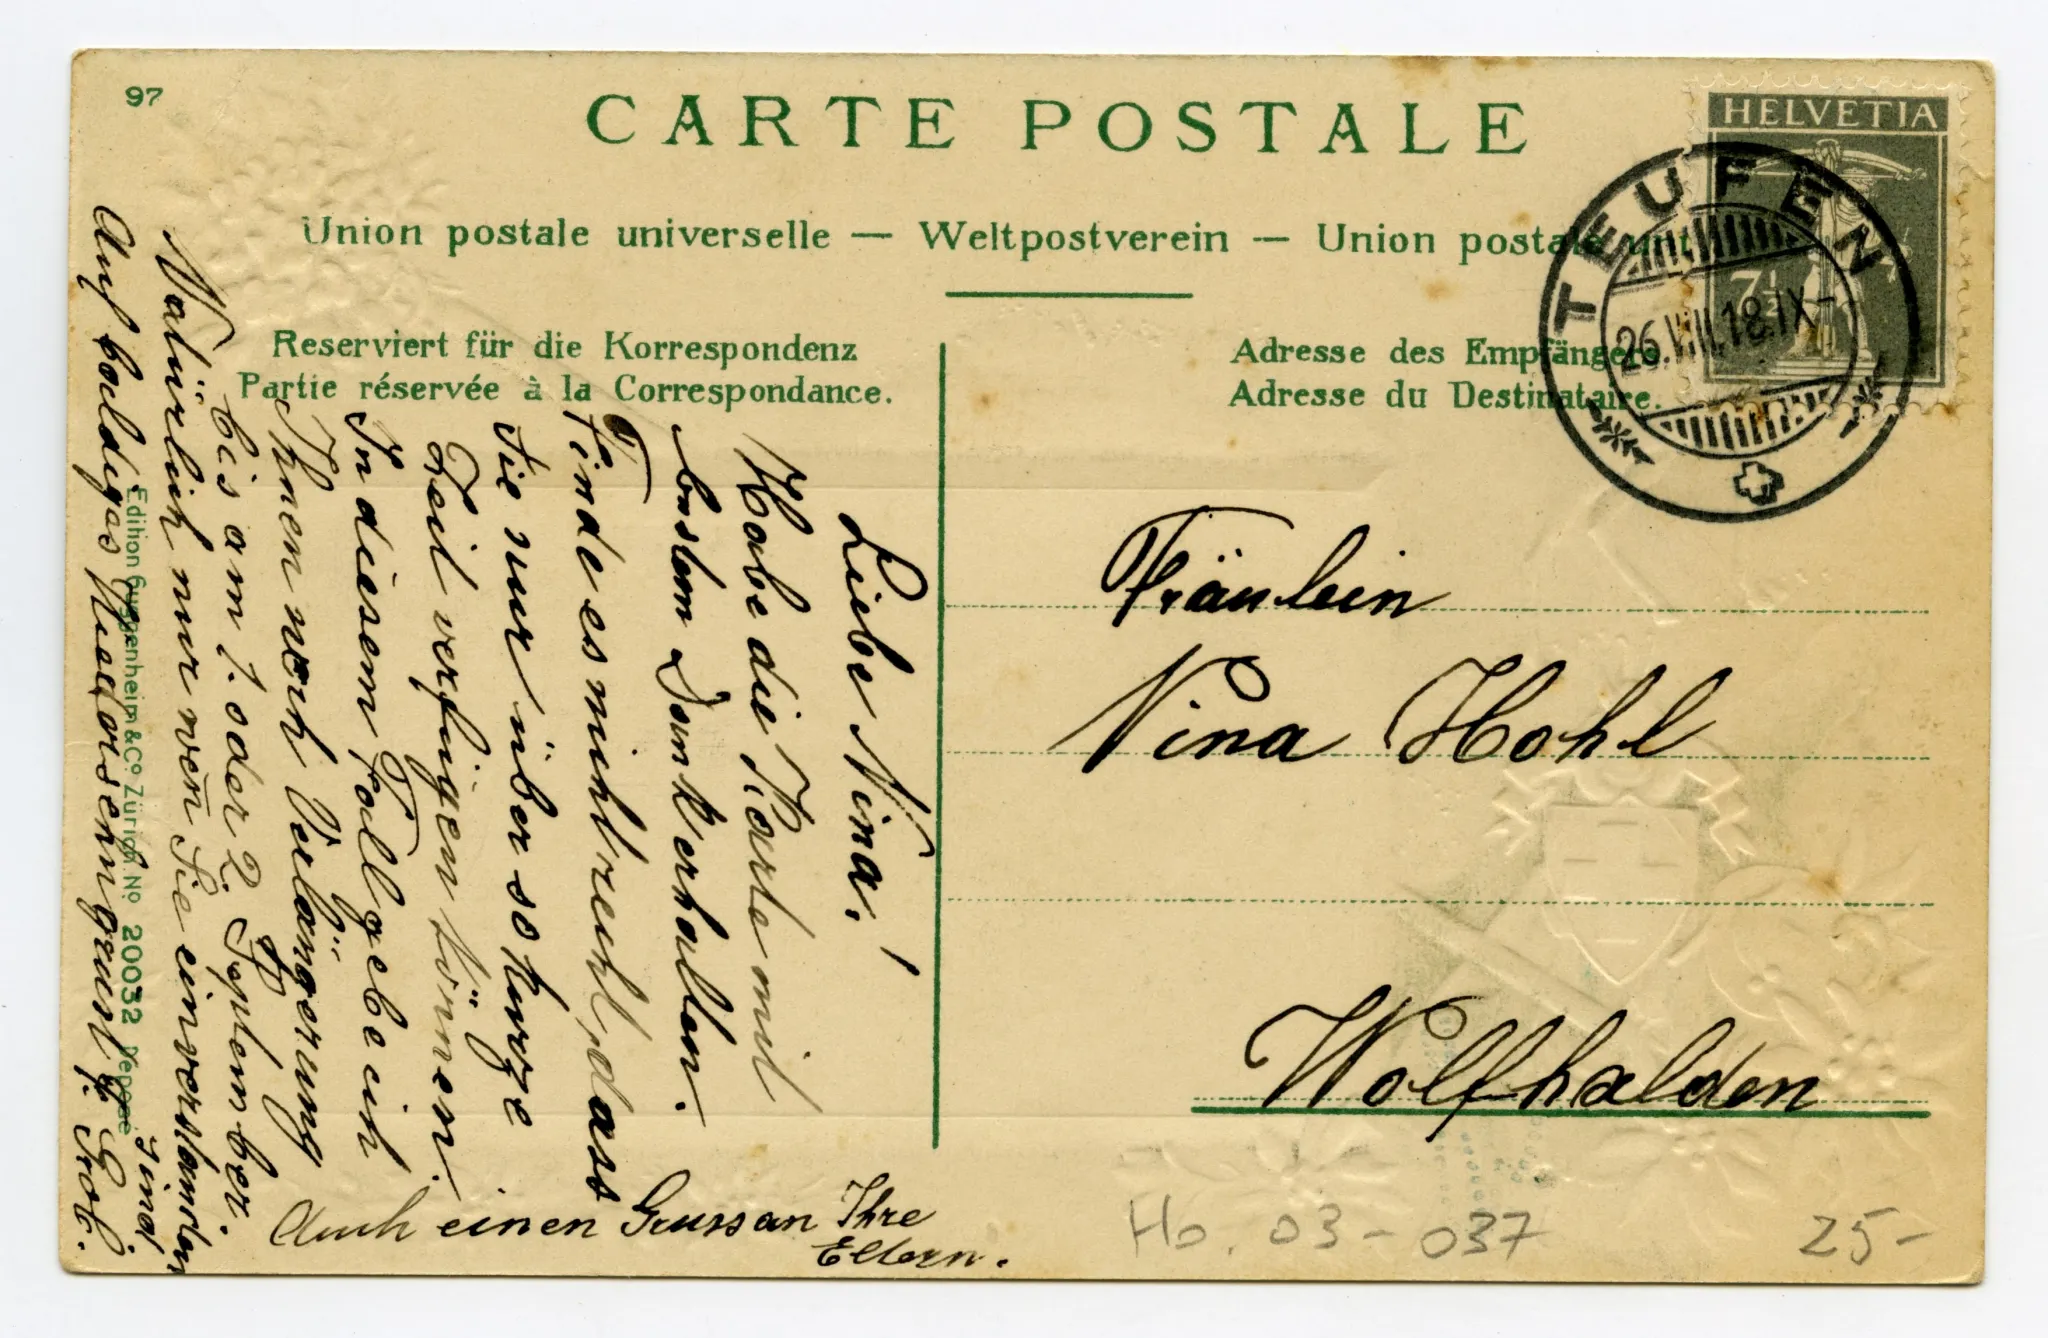 97
CARTE POSTALE
Union postale universelle — Weltpostverein — Union postale
Reserviert für die Korrespondenz
Partie réservée à la Correspondance.
Adresse des Empfängers.
Adresse du Destinataire.
HELVETIA
7½
TEUFEN
26.VIII.18.IX-
Liebe Nina!
Habe die Karte mit
bestem Dank erhalten.
Finde es nicht recht, dass
Sie nur über so kurze
Zeit verfügen können.
In diesem Fall gebe ich
Ihnen noch Verlängerung
bis am 1. oder 2. September.
Natürlich nur wen̄ Sie einverstanden
sind.
Auf baldiges Wiedersehn grüsst J. Grob.
Auch einen Gruss an Ihre
Eltern.
Fräulein
Nina Hohl
Wolfhalden
Edition Guggenheim & Co Zürich No. 20032 Déposé
Ho. 03-037
25-